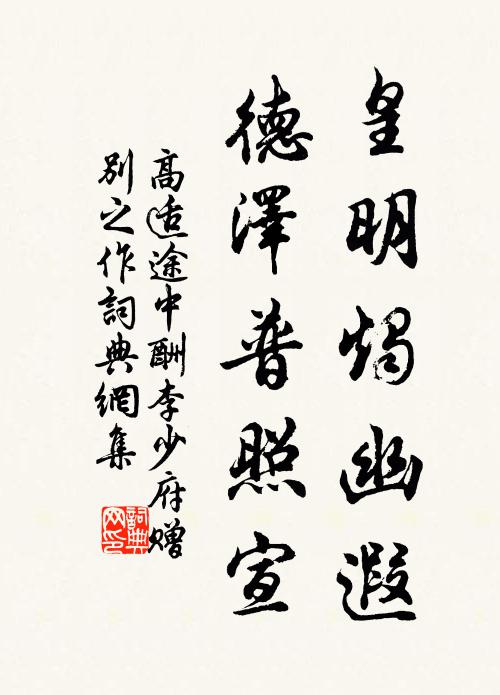 皇明燭幽遐
德澤普照宣
高适途中酬李少府赠
别之作詞典網集
詞典
网印